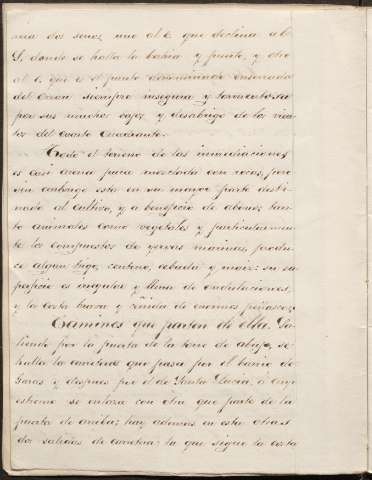 ma dos senos, uno al E. que declina al
S. donde se halla la bahia y puerto, y otro
al O. que es el punto denominado ensenada
del Orzan siempre insegura y tormentosa
por sus muchos bajos y desabrigo de los vien
tos del cuarto cuadrante.
Todo el terreno de las inmediaciones
es casi arena pura mezclada con rocas, pero
sin embargo esta en su mayor parte desti
nado al cultivo, y a beneficio de abonos tan
to animales como vegetales y particularmen
te los compuestos de yervas marinas, produ
ce algun trigo, centeno, cebada y maiz: su su
perficie es irregular y llena de ondulaciones,
y la costa brava y ceñida de enormes peñascos.
Caminos que parten de ella. Sa
liendo por la puerta de la torre de abajo, se
halla la carretera que pasa por el barrio de
Garas y despues por el de Santa Lucia, a cuyo
estremo se enlaza con otra que parte de la
puerta de arriba; hay ademas en esta otras
dos salidas de carretera: la que sigue la costa